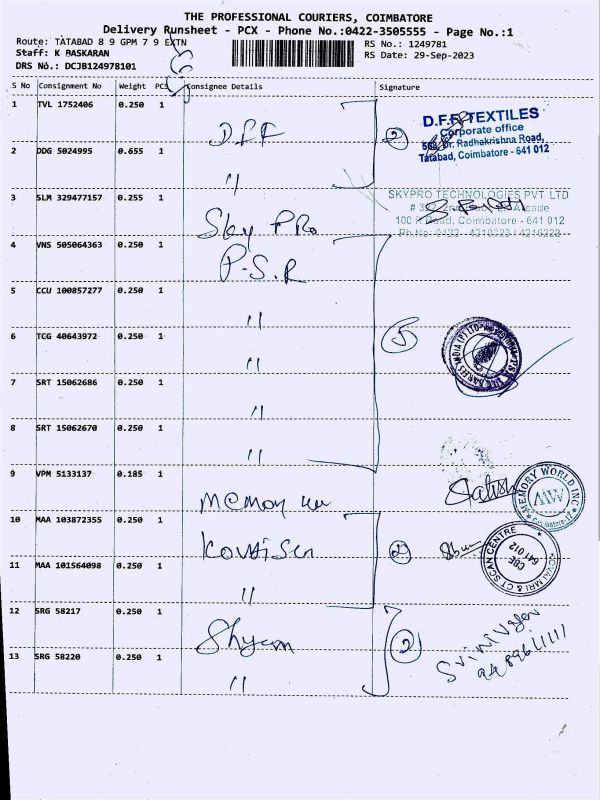 THE PROFESSIONAL COURIERS, COIMBATORE
Delivery Runsheet - PCX - Phone No.:0422-3505555 - Page No.:1
Route: TATABAD 8 9 GPM 7 9 EXTN
RS No.: 1249781
Staff: K BASKARAN
RS Date: 29-Sep-2023
DRS No.: DCJB124978101
S No Consignment No Weight PCS Consignee Details Signature
1 TVL 1752406 0.250 1 D.F.F 2
D.F.F. TEXTILES
Corporate office
Dr. Radhakrishna Road,
Tatabad, Coimbatore - 641 012
2 DDG 5024995 0.655 1 "
3 SLM 329477157 0.255 1 Sky PRo
SKYPRO TECHNOLOGIES PVT LTD
Coimbatore - 641 012
4 VNS 505064363 0.250 1 P.S.R
5 CCU 100857277 0.250 1 "
6 TCG 40643972 0.250 1 " 5
7 SRT 15062686 0.250 1 "
8 SRT 15062670 0.250 1 "
9 VPM 5133137 0.185 1 Memory
Satish
MEMORY WORLD INC
MW
Coimbatore-12
10 MAA 103872355 0.250 1 2
KOVAI MRI & CT SCAN CENTRE
CBE
641 012
11 MAA 101564098 0.250 1 "
12 SRG 58217 0.250 1 Shyam 2
13 SRG 58220 0.250 1 "